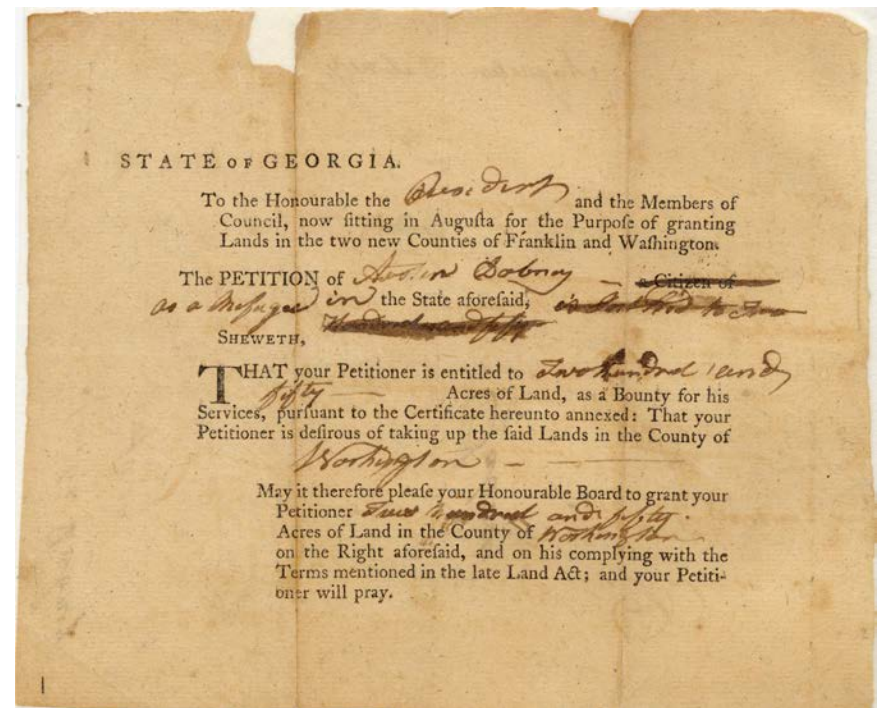 STATE OF GEORGIA.
To the Honourable the President and the Members of
Council, now ſitting in Auguſta for the Purpoſe of granting
Lands in the two new Counties of Franklin and Waſhington.
The PETITION of Austin Dabney — a Citizen of
as a Refugee in the State aforeſaid, is Intitled to Two
Hundred and fifty
SHEWETH,
THAT your Petitioner is entitled to Two hundred and
fifty — Acres of Land, as a Bounty for his
Services, purſuant to the Certificate hereunto annexed: That your
Petitioner is deſirous of taking up the ſaid Lands in the County of
Washington — —
May it therefore pleaſe your Honourable Board to grant your
Petitioner Two hundred and fifty.
Acres of Land in the County of Washington
on the Right aforeſaid, and on his complying with the
Terms mentioned in the late Land Act; and your Petiti-
oner will pray.